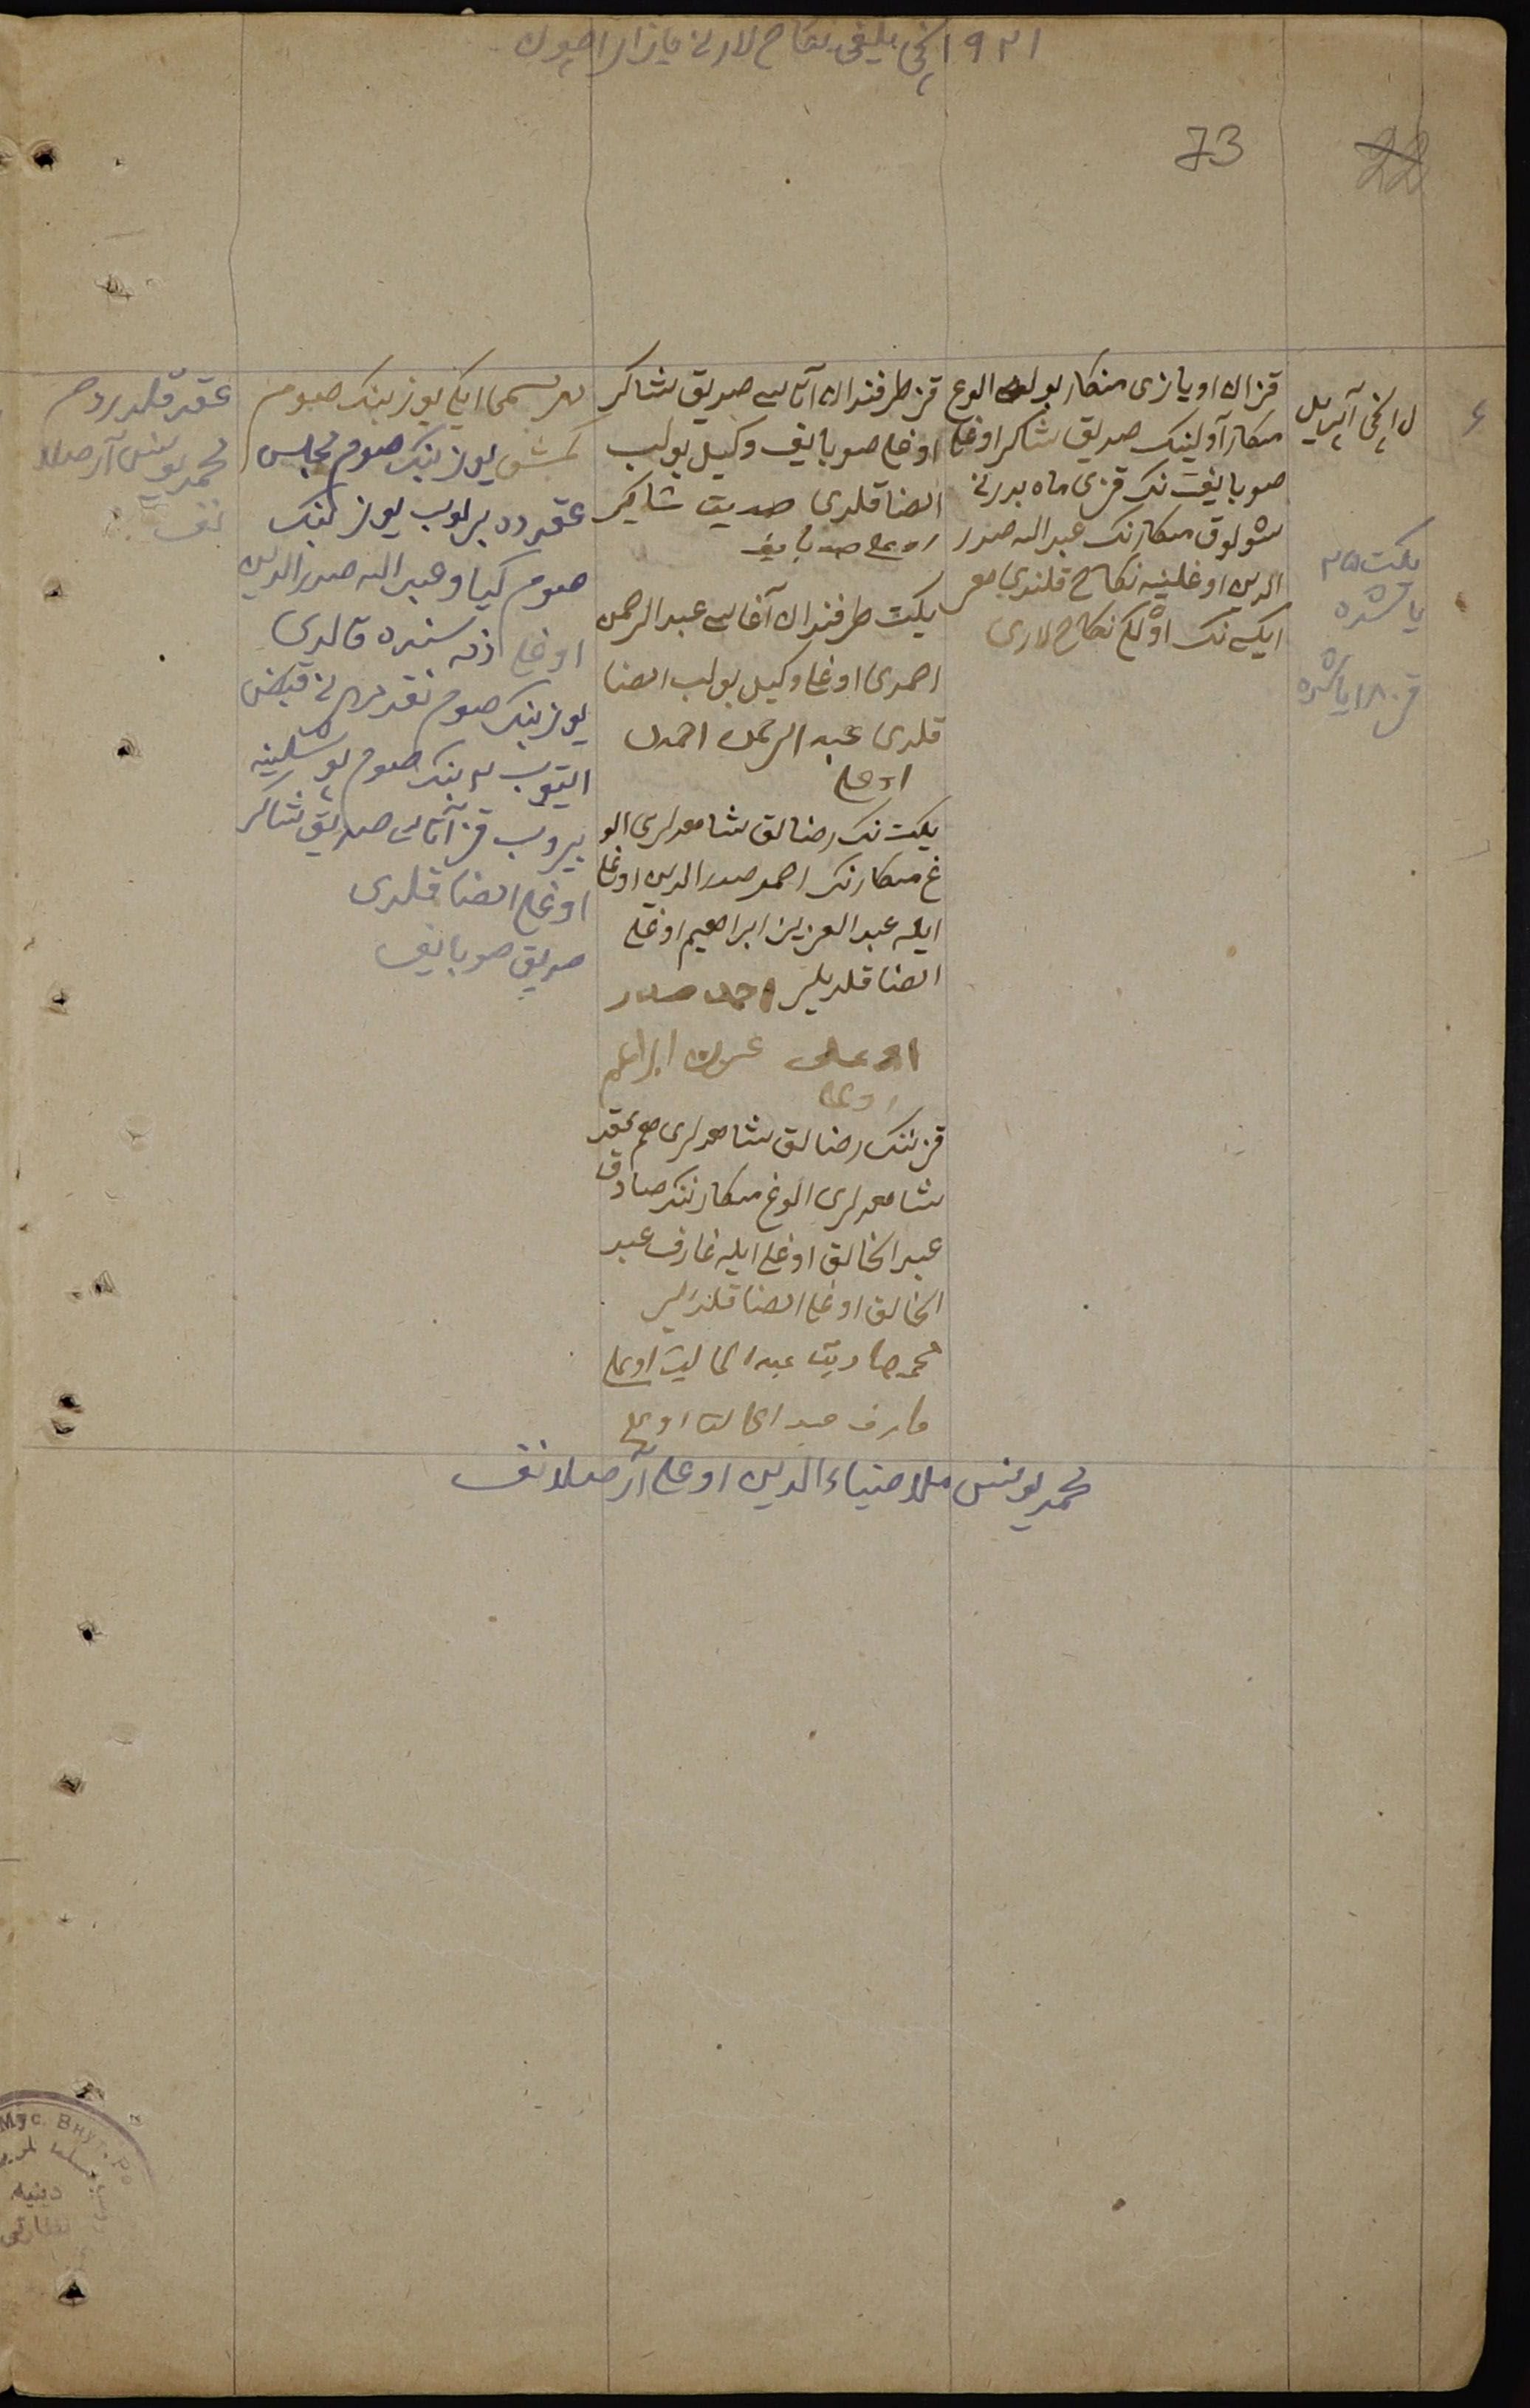 ١٩٢١ نچی ییلغی نکاح لارنی یازار اوچون
73
22
٤
١ نچی آپریل
یکت ٢٥
یاشنده
قز ١٨ یاشنده
قزان اویازی منکار بولص الوغ
منکار آولینک صدیق شاکر اوغلی
صوبایف نک قزی ماه بدرنی
شولوق منکارنک عبدالله صدر
الدین اوغلینه نکاح قلندی مع
ایکی نک اولگی نکاح لاری
قز طرفندان آتاسی صدیق شاکر
اوغلی صوبایف وکیل بولیب
امضا قلدی صدیق شاکر
اوغلی صوبایف
یکت طرفندان آغاسی عبدالرحمن
احمدی اوغلی وکیل بولیب امضا
قلدی عبدالرحمن احمدی
اوغلی
یکت نک رضالق شاهدلری الو
غ منکارنک احمد صدرالدین اوغلی
ایله عبدالعزیز ابراهیم اوغلی
امضا قلدیلر احمد صدر
اوغلی عزیز ابراهیم
اوغلی
قزننک رضالق شاهدلری هم عقد
شاهدلری الوغ منکارننک صادق
عبدالخالق اوغلی ایله عارف عبد
الخالق اوغلی امضا قلدیلر
محمد صادیق عبدالخالیق اوغلی
عارف عبدالخالق اوغلی
مهر مسمی ایکی یوز بینک صوم
کمش یوز بینک صوم مجلس
عقدده برلوب یوز بینک
صوم کیاو عبدالله صدرالدین
اوغلی ذمه سنده قالدی
یوز بینک صوم نقد مهرنی قبض
ایتوب بینک صوم
بیروب قز آتاسی صدیق شاکر
اوغلی امضا قلدی
صدیق صوبایف
عقد قلدردم
محمد یونس آرصلا
نف
محمد یونس ملا ضیاءالدین اوغلی آرصلانف
Мус. Внут. Ро
دینیه
نظارتی